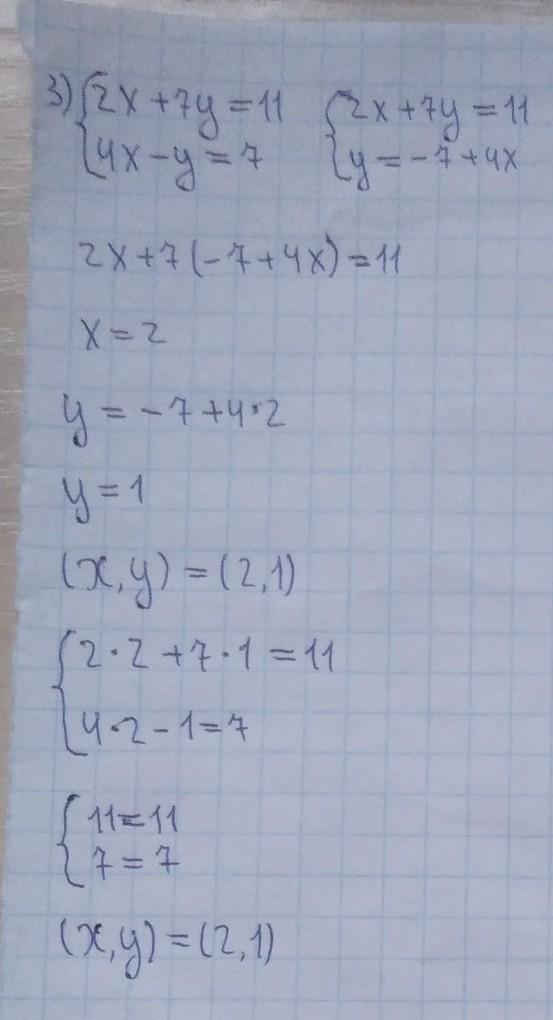 3) {2x+7y=11 {2x+7y=11
{4x-y=7 {y=-7+4x
2x+7(-7+4x)=11
x=2
y=-7+4·2
y=1
(x,y)=(2,1)
{2·2+7·1=11
{4·2-1=7
{11=11
{7=7
(x,y)=(2,1)